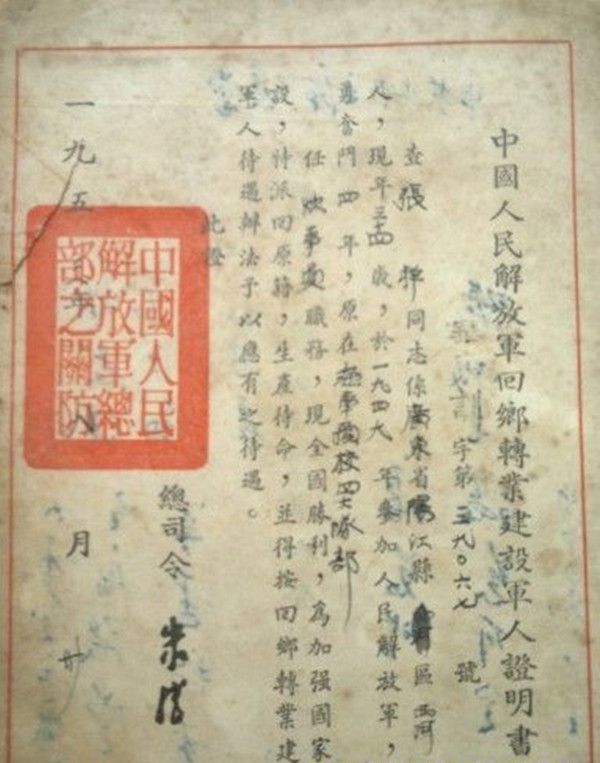 中國人民解放軍回鄉轉業建設軍人證明書
字第三九〇六七號
查張揮同志係廣東省陽江縣區西河
人，現年三四歲，於一九四六年參加人民解放軍，
奮鬥四年，原在四七隊部
任炊事員職務，現全國勝利，為加强國家
設，特派回原籍，生產待命，並得按回鄉轉業建
軍人待遇辦法予以應有之待遇。
此證
總司令 朱德
一九五年八月廿
中國人民
解放軍總
部之關防